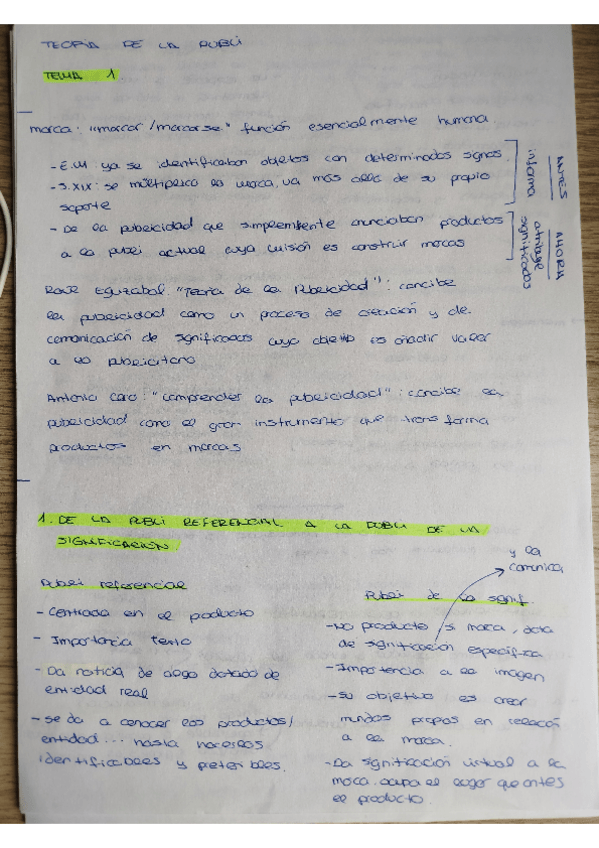 TEORÍA DE LA PUBLI
TEMA 1
marca: "marcar/marcarse" función esencialmente humana.
- E.M ya se identificaban objetos con determinados signos.
- S.XIX: se múltiplica la marca, va más allá de su propio
soporte
- De la publicidad que simplemente anunciaban productos
a la publi actual cuya misión es construir marcas
ANTES
informa
AHORA
atribuye
significados
Raúl Eguizabal: "Teoría de la Publicidad": concibe
la publicidad como un proceso de creación y de
comunicación de significados cuyo objeto es añadir valor
a lo publicitario
Antonio Caro: "comprender la publicidad": concibe la
publicidad como el gran instrumento que transforma
productos en marcas
1. DE LA PUBLI REFERENCIAL A LA PUBLI DE LA
SIGNIFICACIÓN.
Publi referencial
- Centrada en el producto
- Importancia texto
- Da noticia de algo dotado de
entidad real
- se da a conocer los productos/
entidad... hasta hacerlos
identificables y preferibles.
y la
comunica
Publi de la signif.
- No producto si marca, dota
de significación específica
- Importancia a la imagen
- Su objetivo es crear
mundos propios en relación
a la marca.
- La significación virtual a la
marca. ocupa el lugar que antes
el producto.